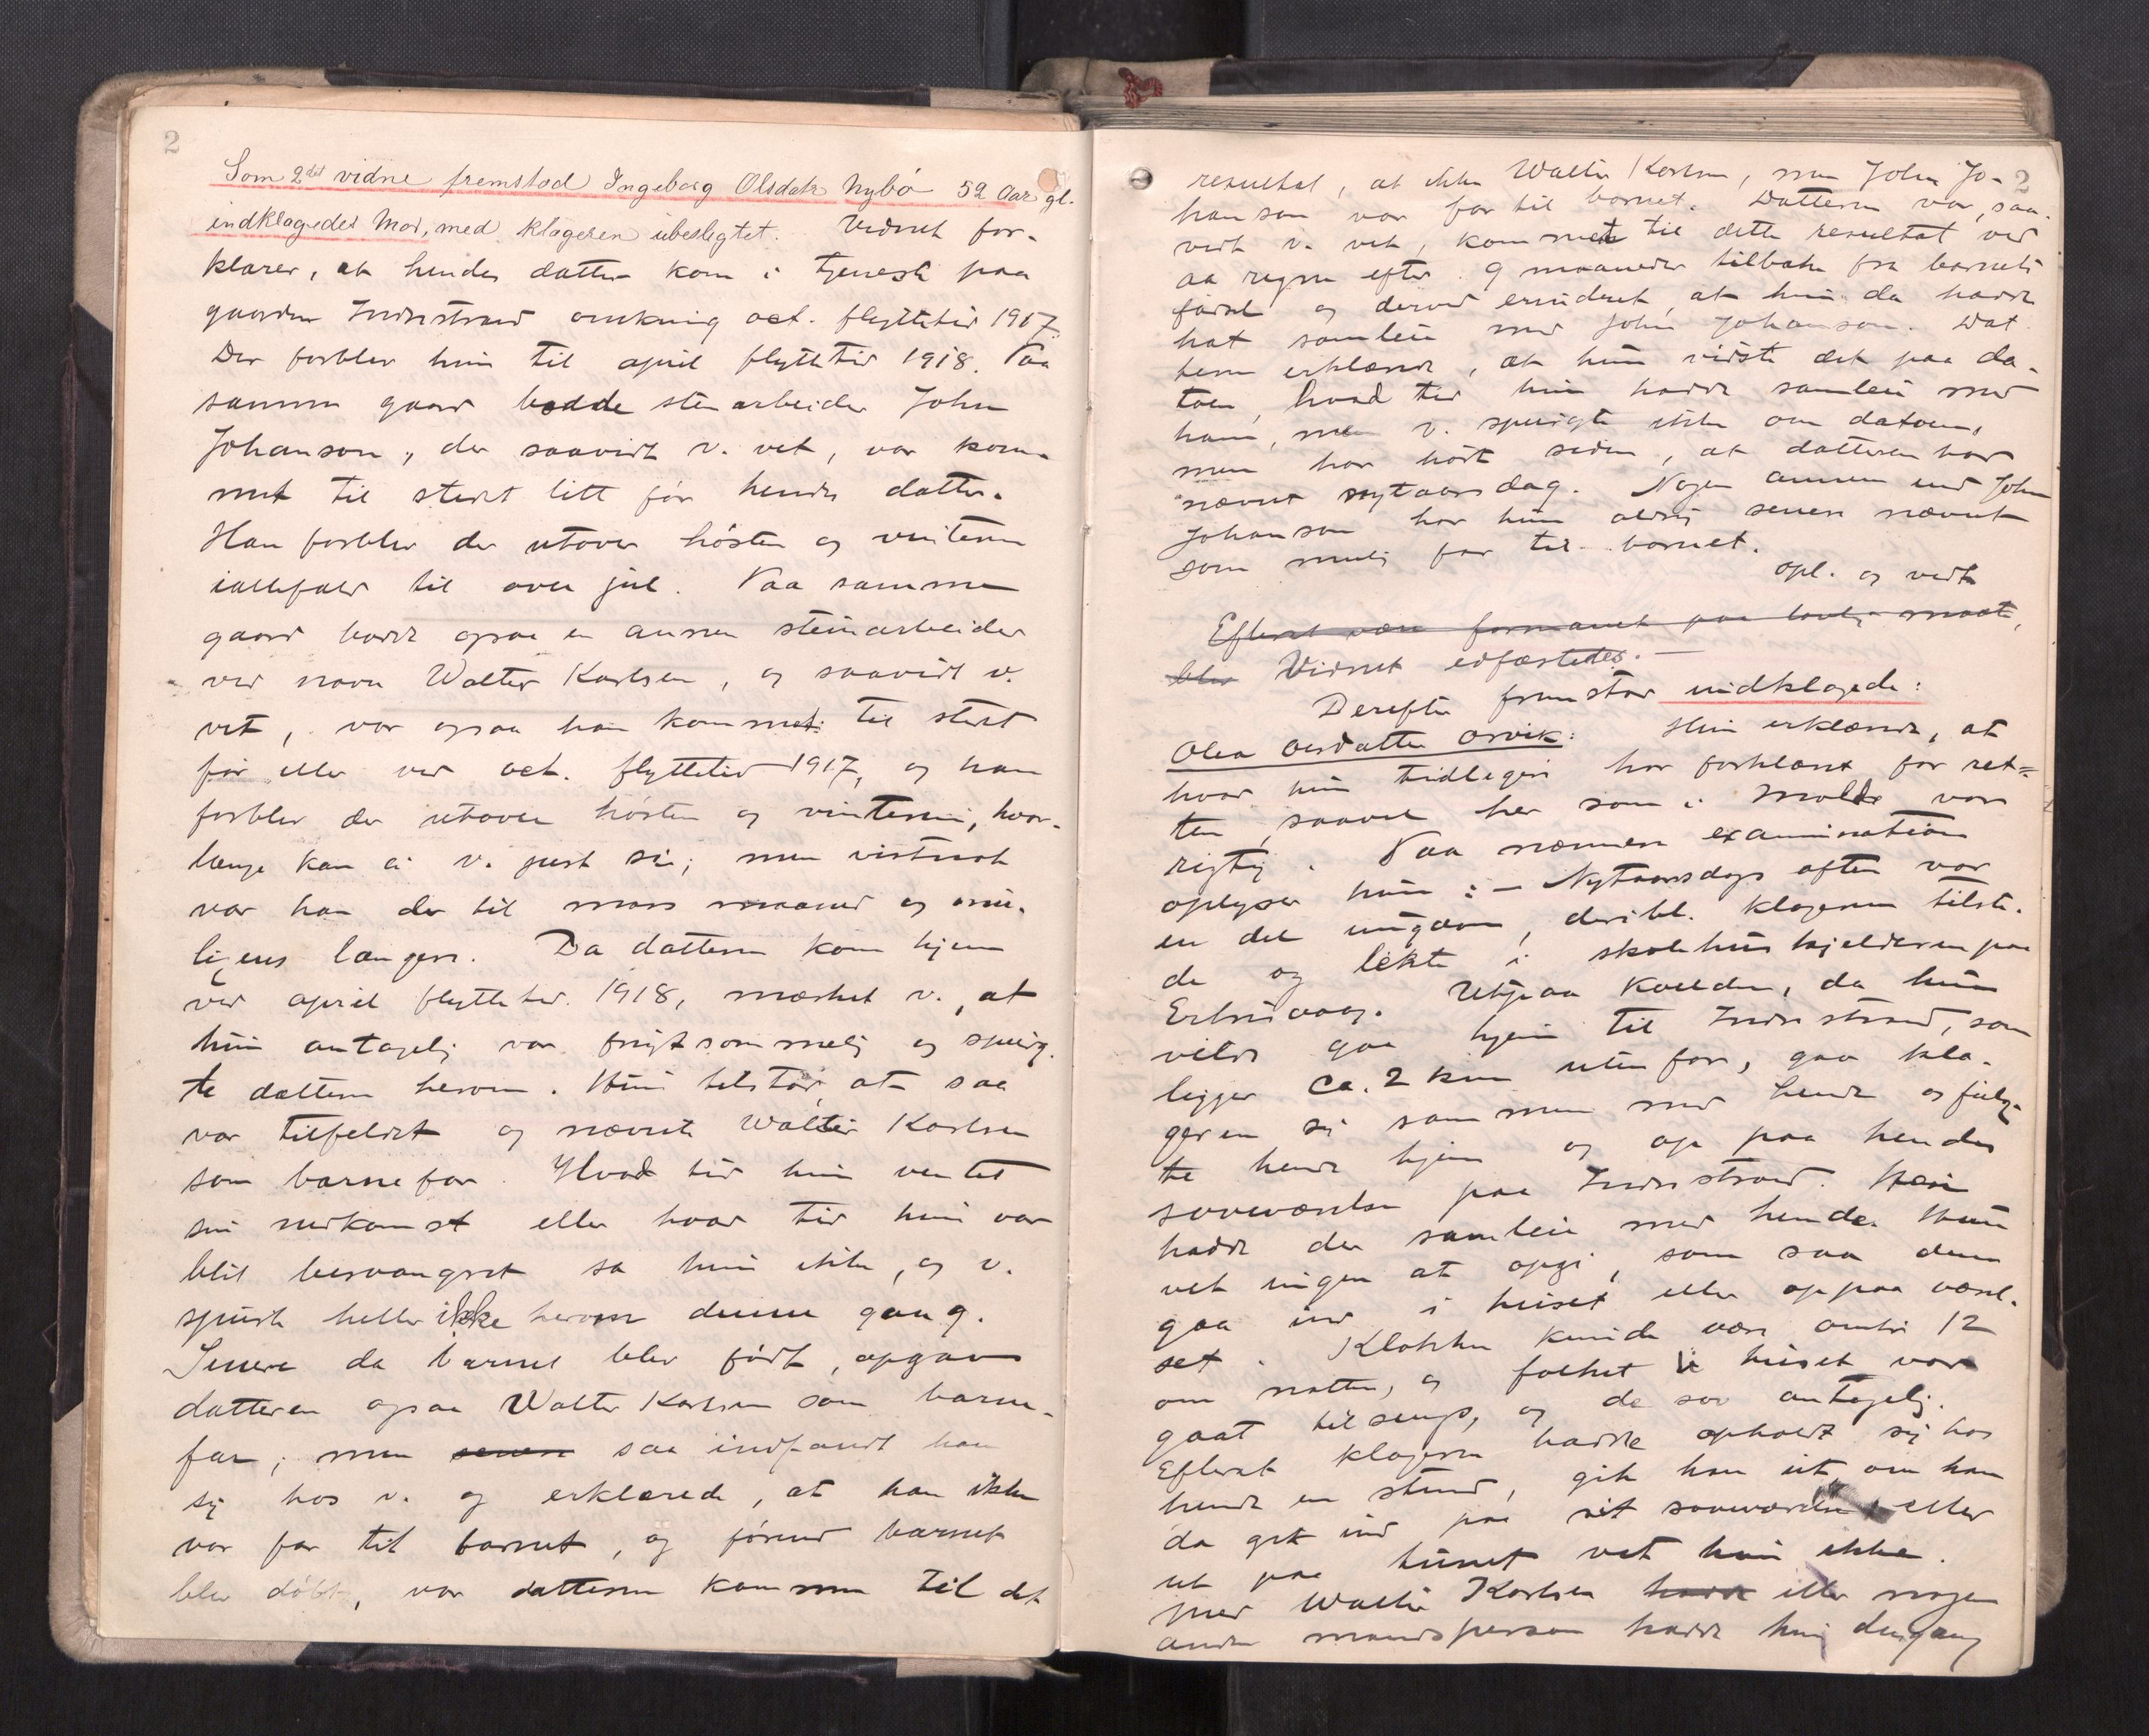 2
Som 2det vidne fremstod Ingeborg Olsdatr Nybö 52 Aar gl.
indklagedes Mor, med klageren ubeslegtet. Vidnet for-
klarer, at hendes datter kom i tjeneste paa
gaarden Indrestrand omkring oct. flyttetid 1917.
Der forblev hun til april flyttetid 1918. Paa
samme gaard bodde stenarbeider John
Johanson, der saavidt v. vet, var kom-
met til stedet litt før hendes datter.
Han forblev der utover høsten og vinteren
ialfald til over jul. Paa samme
gaard bodde ogsaa en annen stenarbeider
ved navn Walter Karlsen, og saavidt v.
vet, var ogsaa han kommet til stedet
før eller ved oct. flyttetid 1917, og han
forblev der utover høsten og vinteren, hvor-
længe kan ei v. just si; men vistnok
var han der til mars maaned og mu-
ligens længere. Da datteren kom hjem
ved april flyttetid 1918, merket v., at
hun antagelig var frugtsommelig og spurg-
te datteren herom. Hun tilstod, at saa
var tilfeldet og nævnte Walter Karlsen
som barnefar. Hvad tid hun ventet
sin nedkomst eller hvad tid hun var
blit besvangret sa hun ikke, og v.
spurte heller ikke herom denne gang.
Senere da barnet blev født, opgav
datteren ogsaa Walter Karlsen som barne-
far; men senere saa indfandt han
sig hos v. og erklærede, at han ikke
var far til barnet, og førend barnet
blev døbt, var datteren kommen til det
2
resultat, at ikke Walter Karlsen, men John Jo-
hanson var far til barnet. Datteren var, saa-
vidt v. vet, kommet til dette resultat ved
aa regne efter 9 maaneder tilbake fra barnets
fødsel og derved erindret, at hun da hadde
hat samleie med John Johanson. Dat-
teren erklærede, at hun vidste det paa da-
toen, hvad tid hun hadde samleie med
ham, men v. spurgte ikke om datoen,
men har hørt siden, at datteren har
nævnt nytaarsdag. Nogen annen end John
Johanson har hun aldrig senere nævnt
som mulig far til barnet.
opl. og vedt.
Efterat være formanet paa lovlig maate,
blev Vidnet edfæstedes. —
Derefter fremstod indklagede:
Olea Olsdatter Orvik: Hun erklærede, at
hvad hun tidligere har forklaret for ret-
ten, saavel her som i Molde var
rigtig. Paa nærmere examination
oplyser hun: – Nytaarsdags aften var
en del ungdom, deribl. klageren tilste-
de og lekte i skolehuskjelderen paa
Utpaa kvelden, da hun
vilde gaa hjem til Indrestrand, som
ligger ca. 2 km utenfor, gav kla-
geren sig sammen med hende og fulg-
te hende hjem og op paa hendes
soveværelse paa Indrestrand. Han
hadde der samleie med hende. Hun
vet ingen at opgi, som saa dem
gaa ind i huset eller op paa værel-
set. Klokken kunde være omtr. 12
om natten, og folket i huset var
gaat tilsengs, og de sov antagelig.
Efterat klageren hadde opholdt sig hos
hende en stund, gik han ut om han
da gik ind paa sit soveværelse eller
ut paa tunet vet hun ikke.
Med Walter Karlsen hadde eller nogen
anden mandsperson hadde hun dengang